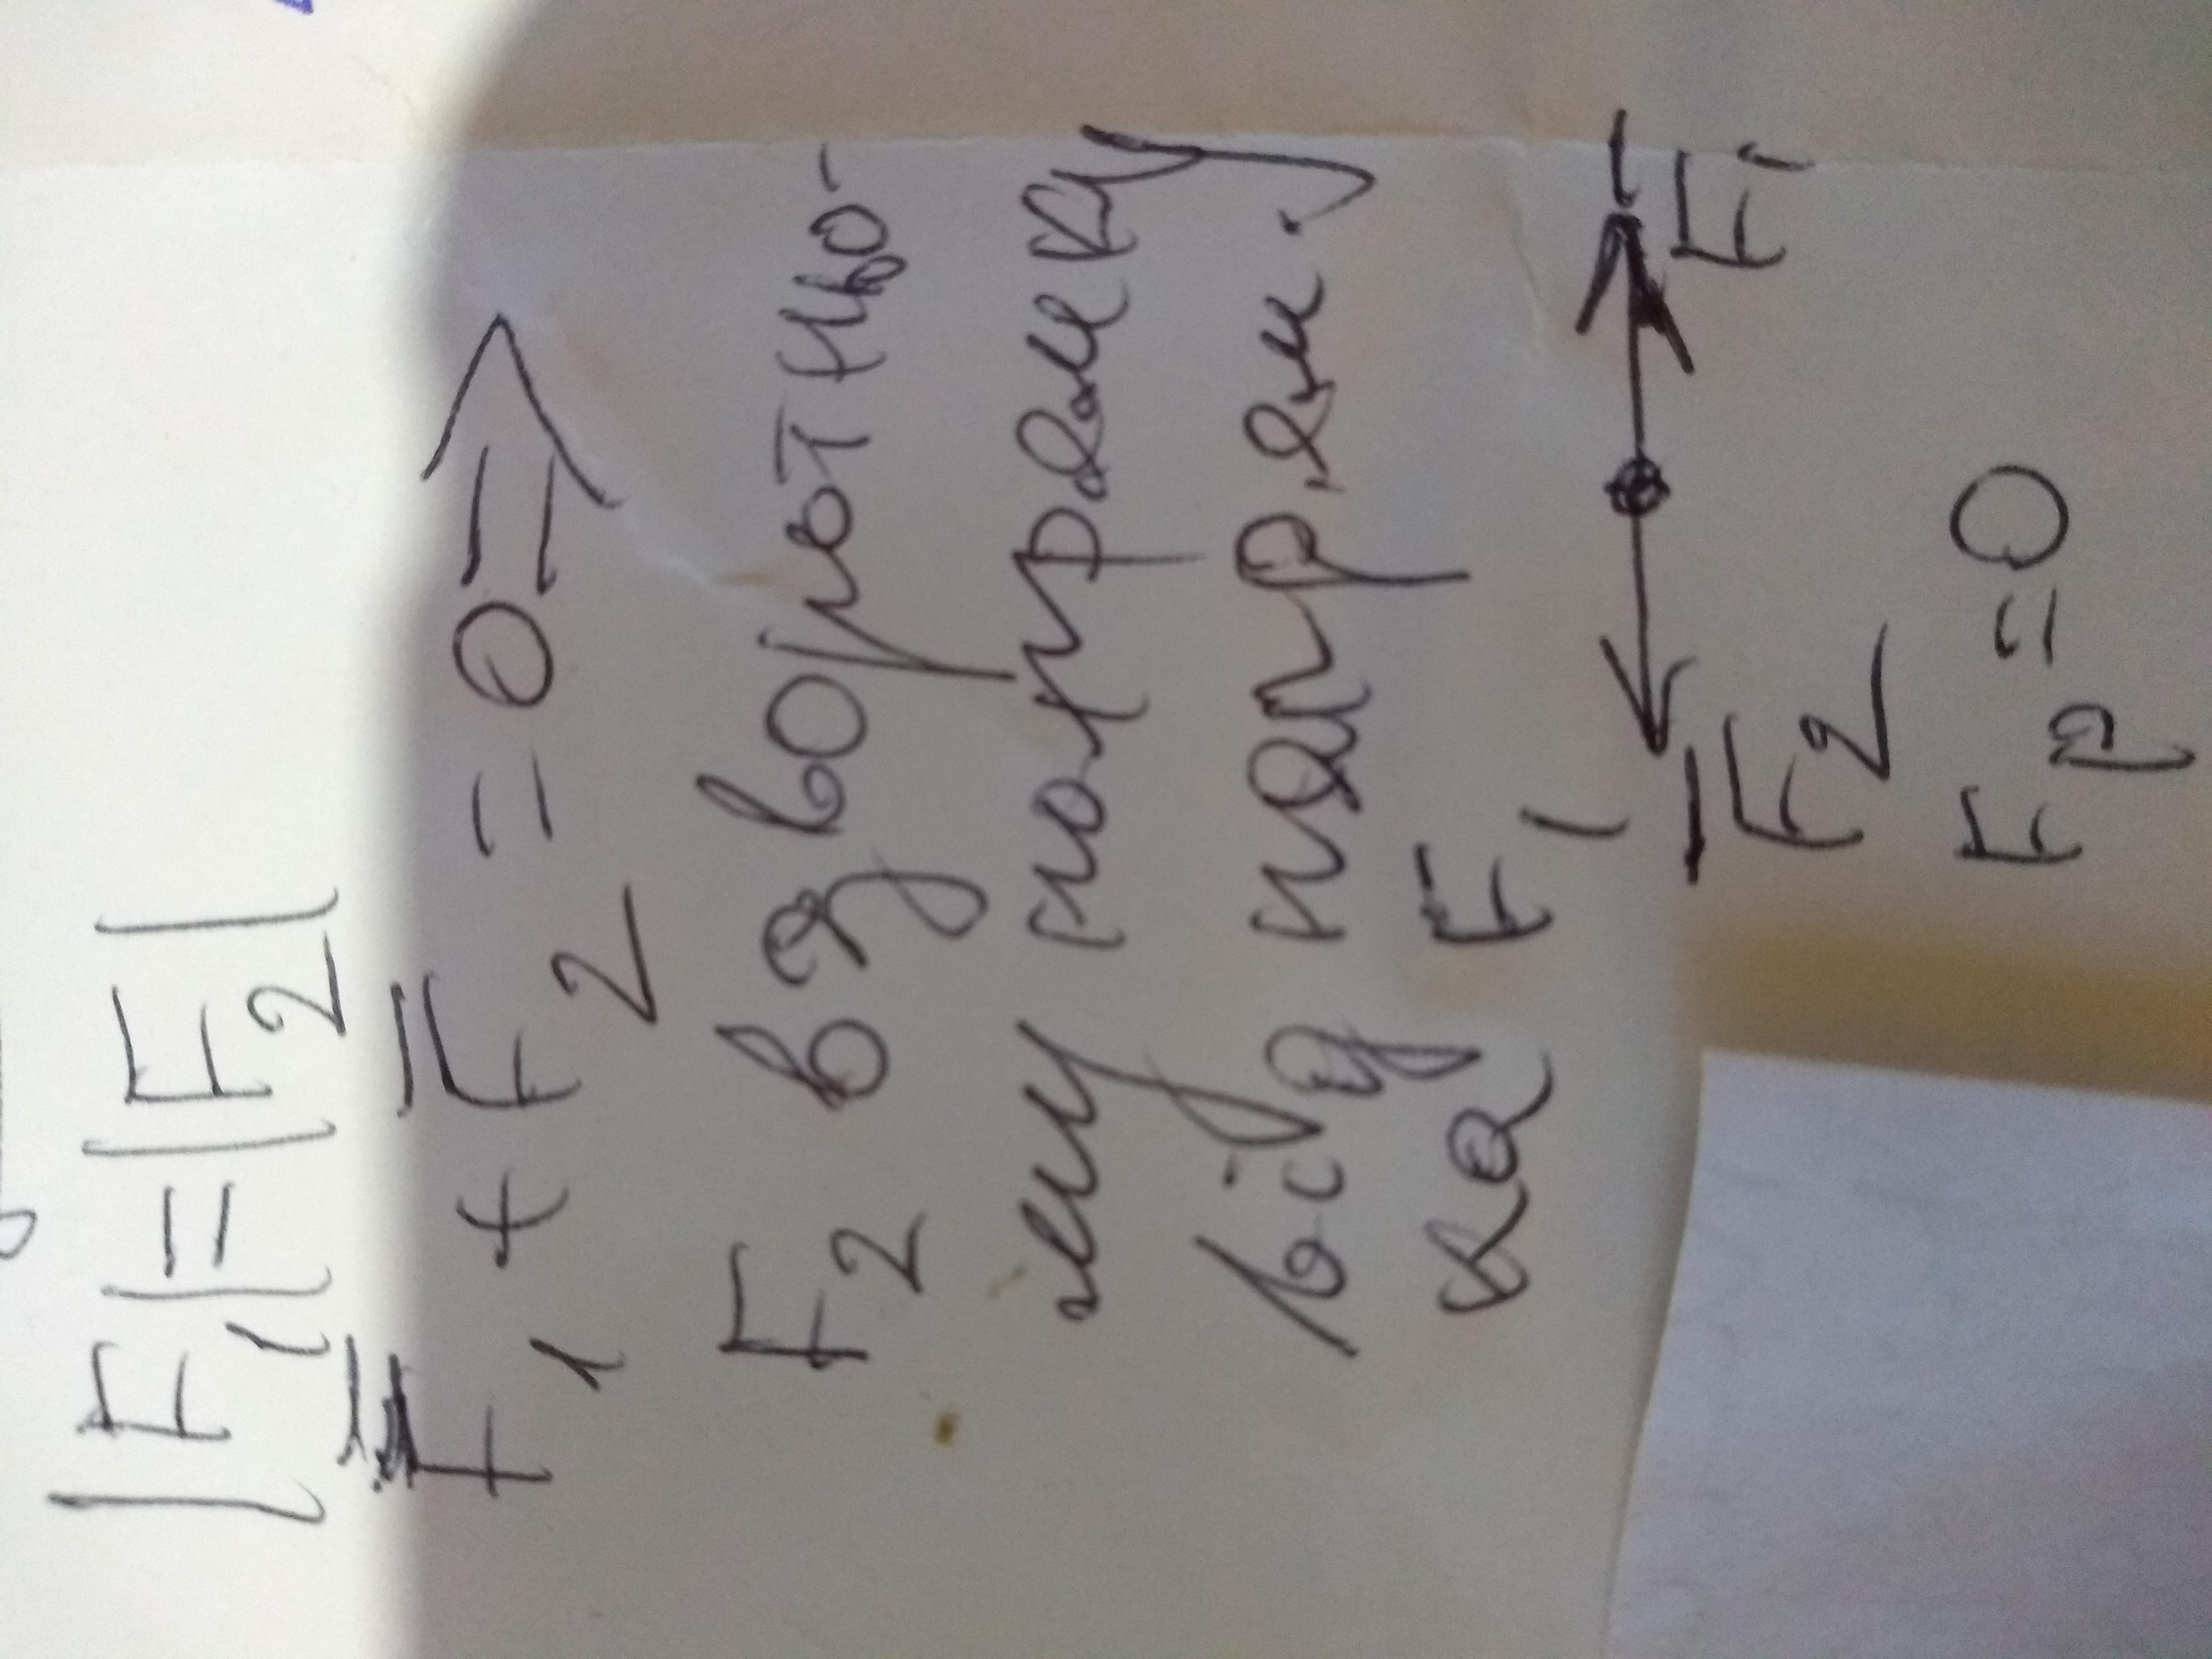 |F₁|=|F₂|
F̅₁ + F̅₂ = 0 ⇒
F₂ в зворотньо-
му напрямку
від напрям.
на F₁
F̅₂ F̅₁
Fр = 0